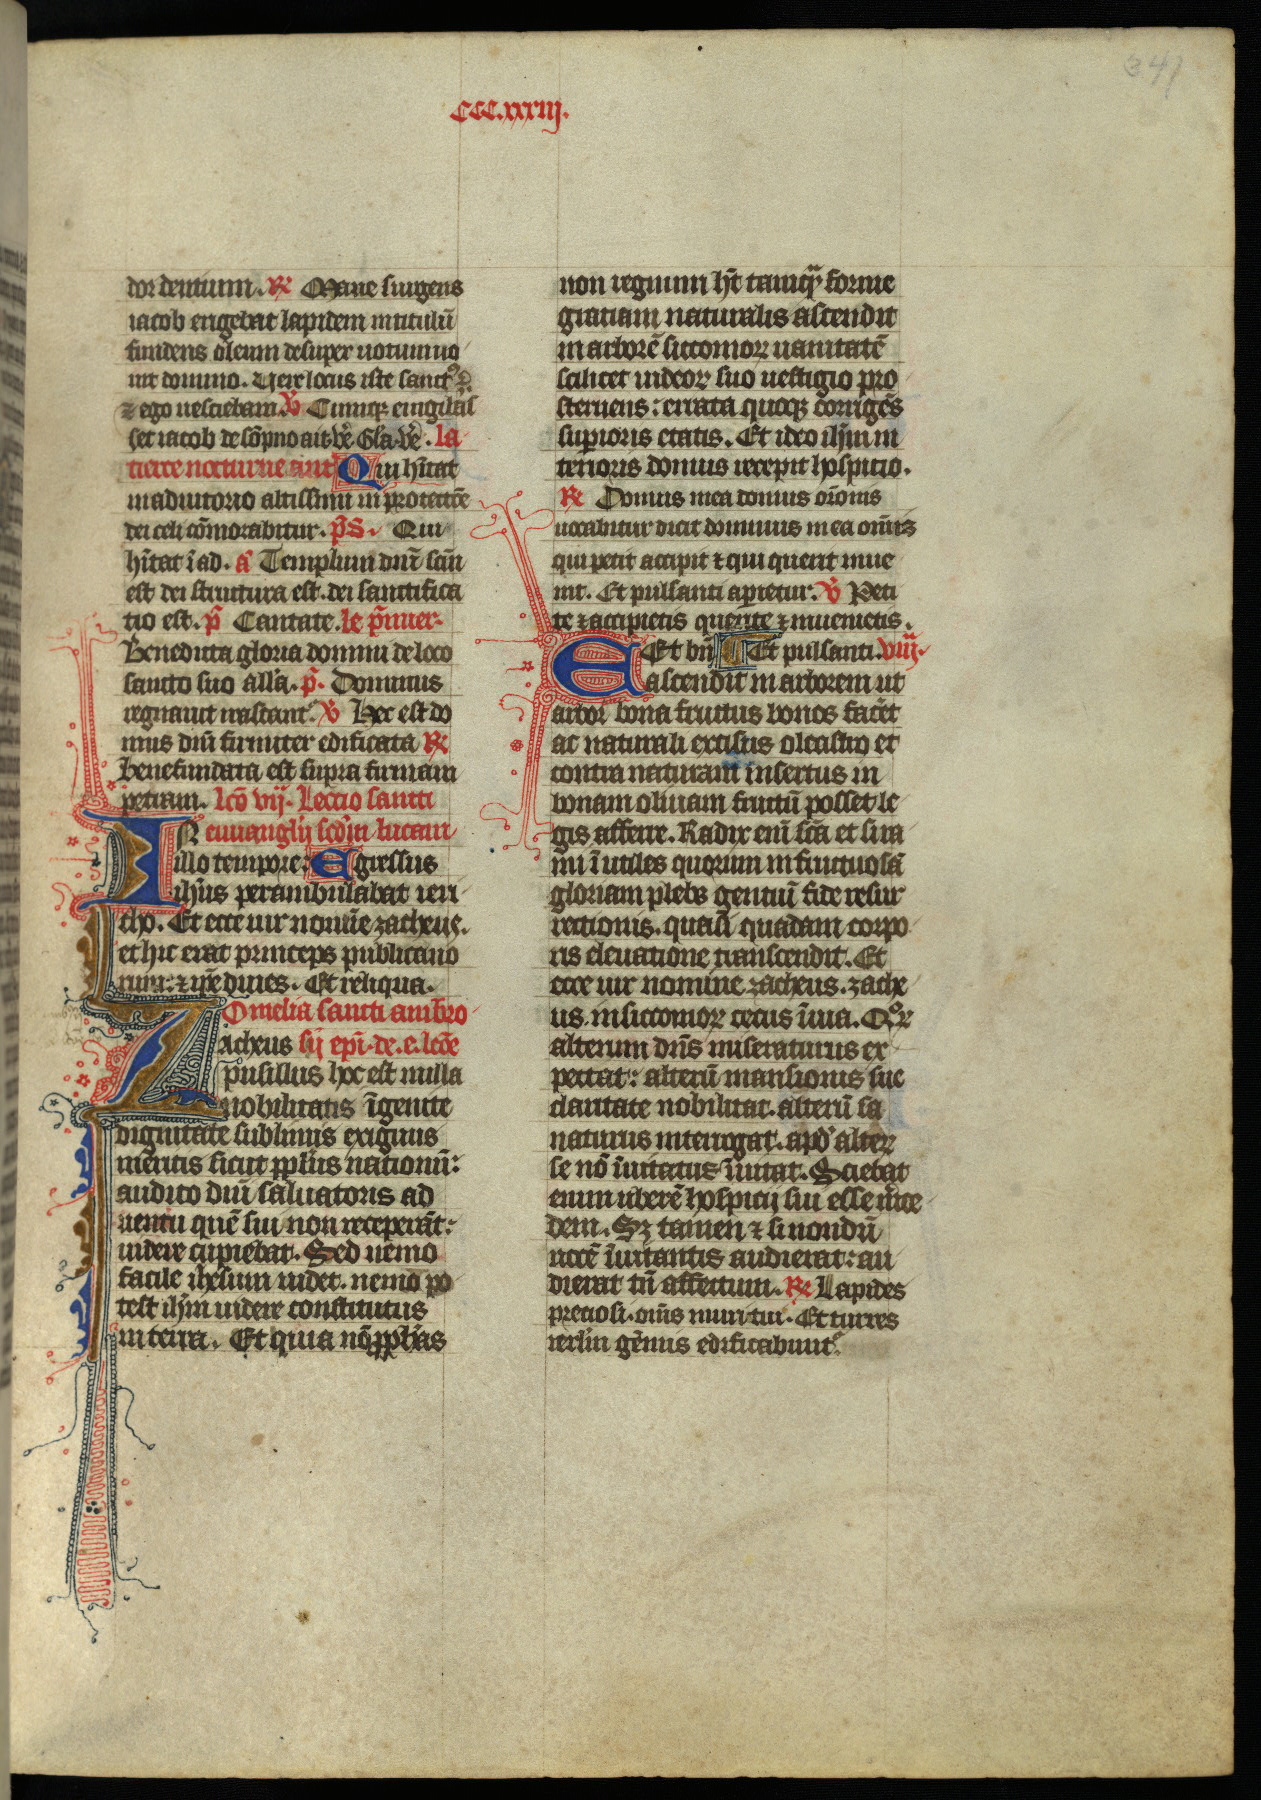 341
CCC.xxxiij.
dor dentium. R Mane surgens
iacob erigebat lapidem in titulū
fundens oleum desuper uotum uo
uit domino. Uere locus iste sanct9
⁊ ego nesciebam. V Cumq; euigilas
set iacob de sōpno ait. Ve. Gla. Ve. la
tierce nocturne ant Qui hitat
in adiutorio altissimi in protectiōe
dei celi cōmorabitur. ps. Qui
hitat ī ad. a Templum dnī scūm
est dei structura est. dei sanctifica
tio est. p Cantate. le p̄mier.
Benedicta gloria domini de loco
sancto suo alla. p. Dominus
regnauit irascant. V Hec est do
mus dnī firmiter edificata R
benefundata est supra firmam
petram. lcō vij. Lectio sancti
IN euuanglij scdm lucam
illo tempore: Egressus
ihus perambulabat ieri
cho. Et ecce uir nomīe zacheus.
et hic erat princeps publicano
rum: ⁊ ip̄e diues. Et reliqua.
Omelia sancti ambro
Zacheus sij epī. de. e. lcōe
pusillus hoc est nulla
nobilitatis īgenite
dignitate sublimis exiguus
meritis sicut pplus nationū:
audito dnī saluatoris ad
uentu quē sui non receperāt:
uidere cupiebat. Sed nemo
facile ihesum uidet. nemo po
test ihm uidere constitutus
in terra. Et quia nō pphas
non regnum ht tamq forme
gratiam naturalis ascendit
in arborē siccomor uanitatē
scilicet iudeor suo uestigio pro
sternens: errata quoq; corrigēs
superioris etatis. Et ideo ihm in
terioris domus recepit hospitio.
R Domus mea domus oīonis
uocabitur dicit dominus in ea omis
qui petit accipit ⁊ qui querit inue
nit. Et pulsanti aperietur. V Peti
te ⁊ accipietis querite ⁊ inuenietis.
Et bn Et pulsanti. viij.
Et ascendit in arborem ut
arbor bona fructus bonos facēt
ac naturali excisus oleastro et
contra naturam insertus in
bonam oliuam fructū posset le
gis afferre. Radix enī sca et si ra
mi īutiles quorum infructuosā
gloriam plebs gentiū fide resur
rectionis. quasi quadam corpo
ris eleuatione transcendit. Et
ecce uir nomine zacheus. zache
us in siccomor cecus ī uia. Qor
alterum dns miseraturus ex
pectat: alterū mansionis sue
claritate nobilitat. alterū sa
naturus interrogat. apd alter
se nō īuitatus īuitat. Sciebat
enim uberē hospicij sui esse mrce
dem. Sz tamen ⁊ si nondū
uocē īuitantis audierat: au
dierat tn affectum. R Lapides
preciosi. oms muri tui. Et turres
ierlm gēmis edificabunt.